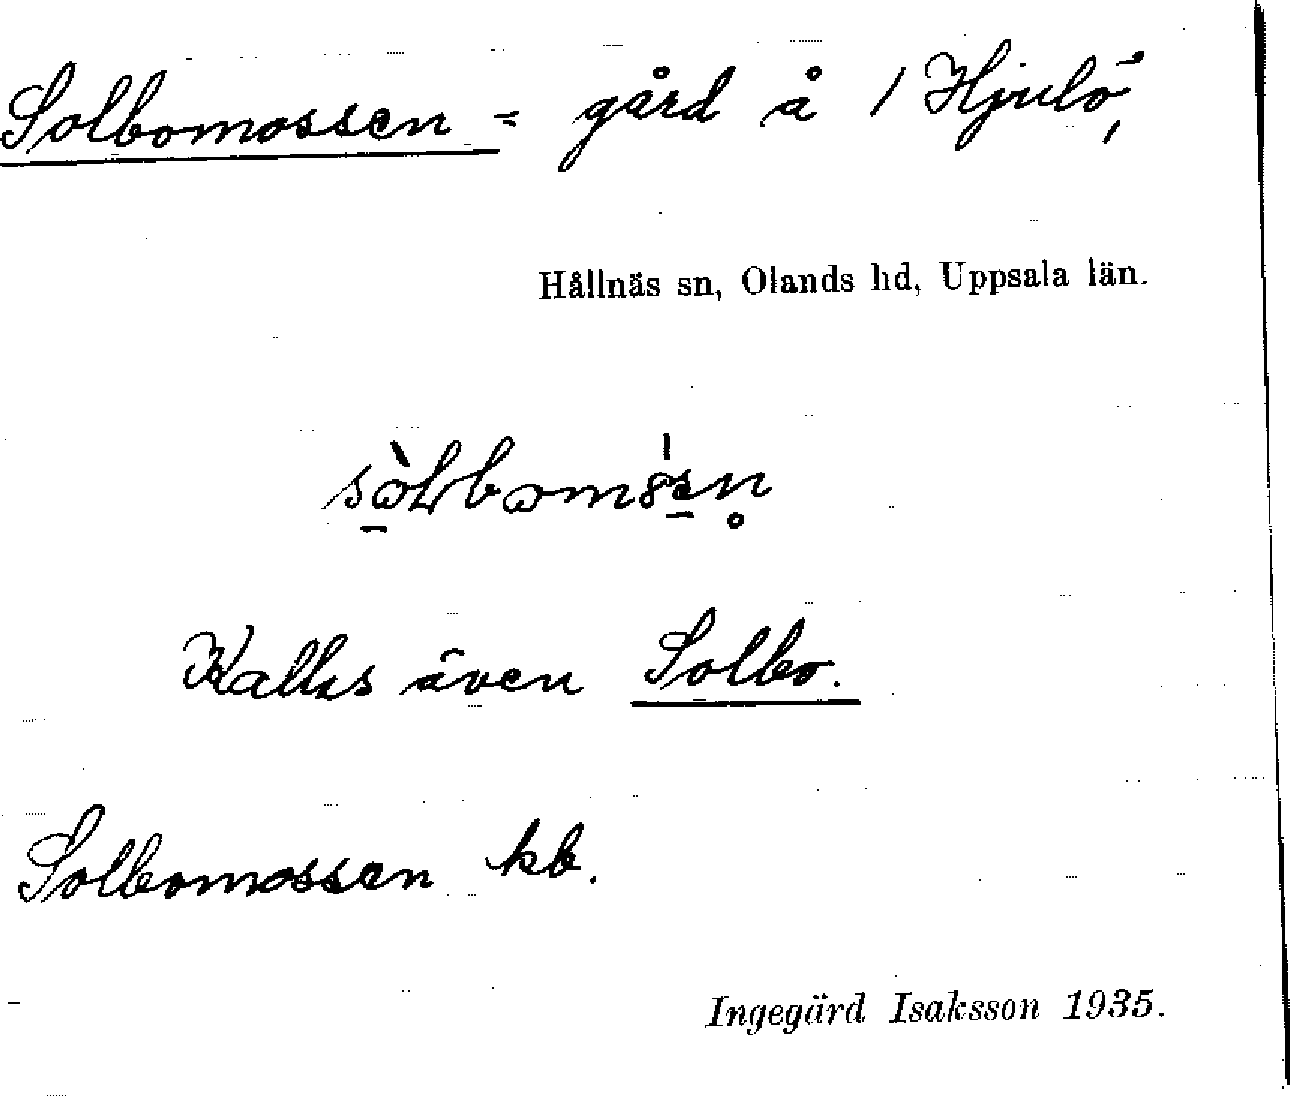 Solbomossen = gård å 1 Hjulö,
Hållnäs sn, Olands hd, Uppsala län.
Kallas även Solbo.
Solbomossen kb.
Ingegärd Isaksson 1935.